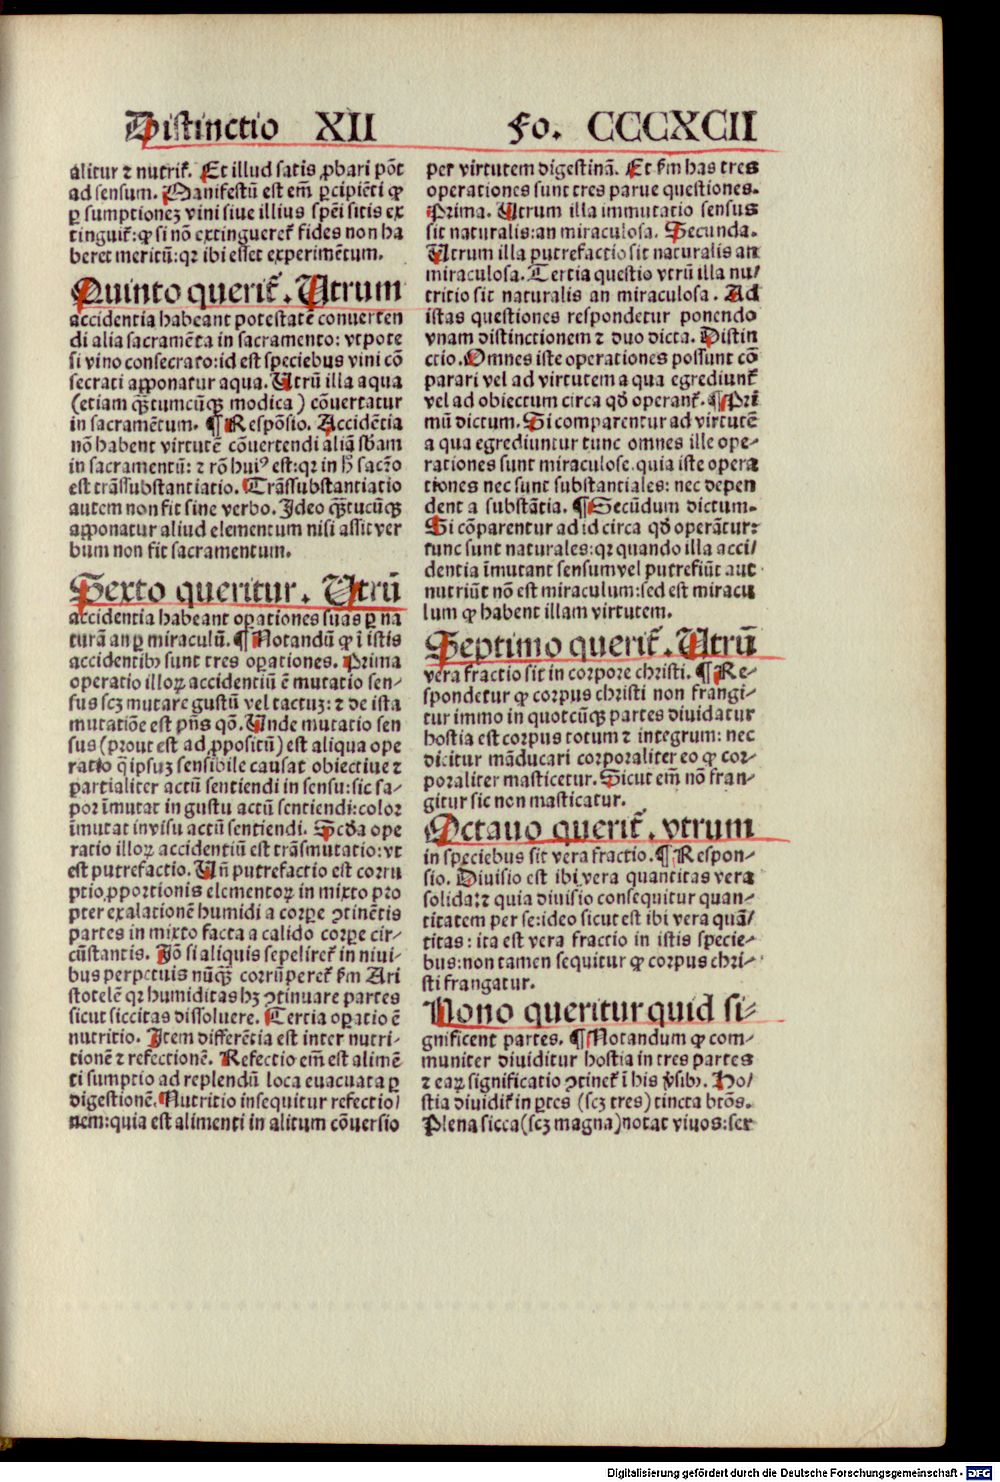 Distinctio XII Fo. CCCXCII
alitur ⁊ nutrit᷑. Et illud satis ꝓbari põt
ad sensum. Manifestũ est em̃ ꝑcipiẽti ꝙ
ꝑ sumptionez vini siue illius spẽi sitis ex
tinguit᷑: ꝙ si nõ extingueret᷑ fides non ha
beret meritũ: qꝛ ibi esset experimẽtum.
Quinto querit᷑. Utrum
accidentia habeant potestatẽ conuerten
di alia sacramẽta in sacramento: vt pote
si vino consecrato: id est speciebus vini cõ
secrati apponatur aqua. Utrũ illa aqua
(etiam qͣ̃tumcũqꝫ modica) cõuertatur
in sacramẽtum. ¶ Respõsio. Accidẽtia
nõ habent virtutẽ cõuertendi aliã sbãm
in sacramentũ: ⁊ rõ huiꝰ est: qꝛ in h̾ sacr̃o
est trãssubstantiatio. Trãssubstantiatio
autem non fit sine verbo. Ideo qͣ̃tucũqꝫ
apponatur aliud elementum nisi assit ver
bum non fit sacramentum.
Sexto queritur. Utrũ
accidentia habeant oꝑationes suas ꝑ na
turã an ꝑ miraculũ. ¶ Notandũ ꝙ ĩ istis
accidentibꝰ sunt tres oꝑationes. Prima
operatio illoꝝ accidentiũ ẽ mutatio sen⸗
sus scꝫ mutare gustũ vel tactuꝫ: ⁊ de ista
mutatiõe est pñs qõ. Unde mutatio sen
sus (prout est ad ꝓpositũ) est aliqua ope
ratio q̃ ipsuꝫ sensibile causat obiectiue ⁊
ꝑartialiter actũ sentiendi in sensu: sic sa⸗
por ĩmutat in gustu actũ sentiendi: color
ĩmutat in visu actũ sentiendi. Scđa ope
ratio illoꝝ accidentiũ est trãsmutatio: vt
est putrefactio. Uñ putrefactio est corru
ptio ꝓportionis elementoꝝ in mixto pro
pter exalationẽ humidi a corꝑe ꝯtinẽtis
partes in mixto facta a calido corꝑe cir⸗
cũstantis. Iõ si aliquis sepeliret᷑ in niui⸗
bus perpetuis nũqͣ̃ corrũperet᷑ ẜm Ari
stotelẽ qꝛ humiditas hꝫ ꝯtinuare partes
sicut siccitas dissoluere. Tertia oꝑatio ẽ
nutritio. Item differẽtia est inter nutri⸗
tionẽ ⁊ refectionẽ. Refectio em̃ est alimẽ
ti sumptio ad replendũ loca euacuata ꝑ
digestionẽ. Nutritio insequitur refectio⸗
nem: quia est alimenti in alitum cõuersio
per virtutem digestinã. Et ẜm has tres
operationes sunt tres parue questiones.
Prima. Utrum illa immutatio sensus
sit naturalis: an miraculosa. Secunda.
Utrum illa putrefactio sit naturalis an
miraculosa. Tertia questio vtrũ illa nu⸗
tritio sit naturalis an miraculosa. Ad
istas questiones respondetur ponendo
vnam distinctionem ⁊ duo dicta. Distin
ctio. Omnes iste operationes possunt cõ
parari vel ad virtutem a qua egrediunt᷑
vel ad obiectum circa qđ operant᷑. ¶ Pri
mũ dictum. Si comparentur ad virtutẽ
a qua egrediuntur tunc omnes ille ope⸗
rationes sunt miraculose. quia iste opera
tiones nec sunt substantiales: nec depen
dent a substãtia. ¶ Secũdum dictum.
Si cõparentur ad id circa qđ operãtur:
tunc sunt naturales: qꝛ quando illa acci⸗
dentia ĩmutant sensum vel putrefiũt aut
nutriũt nõ est miraculum: sed est miracu
lum ꝙ habent illam virtutem.
Septimo querit᷑. Utrũ
vera fractio sit in corpore christi. ¶ Re⸗
spondetur ꝙ corpus christi non frangi⸗
tur immo in quotcũqꝫ partes diuidatur
hostia est corpus totum ⁊ integrum: nec
dicitur mãducari corporaliter eo ꝙ cor⸗
poraliter masticetur. Sicut em̃ nõ fran⸗
gitur sic non masticatur.
Octauo querit᷑. vtrum
in speciebus sit vera fractio. ¶ Respon⸗
sio. Diuisio est ibi vera quantitas vera
solida: ⁊ quia diuisio consequitur quan⸗
titatem per se: ideo sicut est ibi vera quã⸗
titas: ita est vera fractio in istis specie⸗
bus: non tamen sequitur ꝙ corpus chri⸗
sti frangatur.
Nono queritur quid si⸗
gnificent partes. ¶ Notandum ꝙ com⸗
muniter diuiditur hostia in tres partes
⁊ eaꝝ significatio ꝯtinet᷑ ĩ his v̾sibꝰ. Ho⸗
stia diuidit᷑ in ꝑtes (scꝫ tres) tincta btõs.
Plena sicca (scꝫ magna) notat viuos: ser
Digitalisierung gefördert durch die Deutsche Forschungsgemeinschaft - DFG